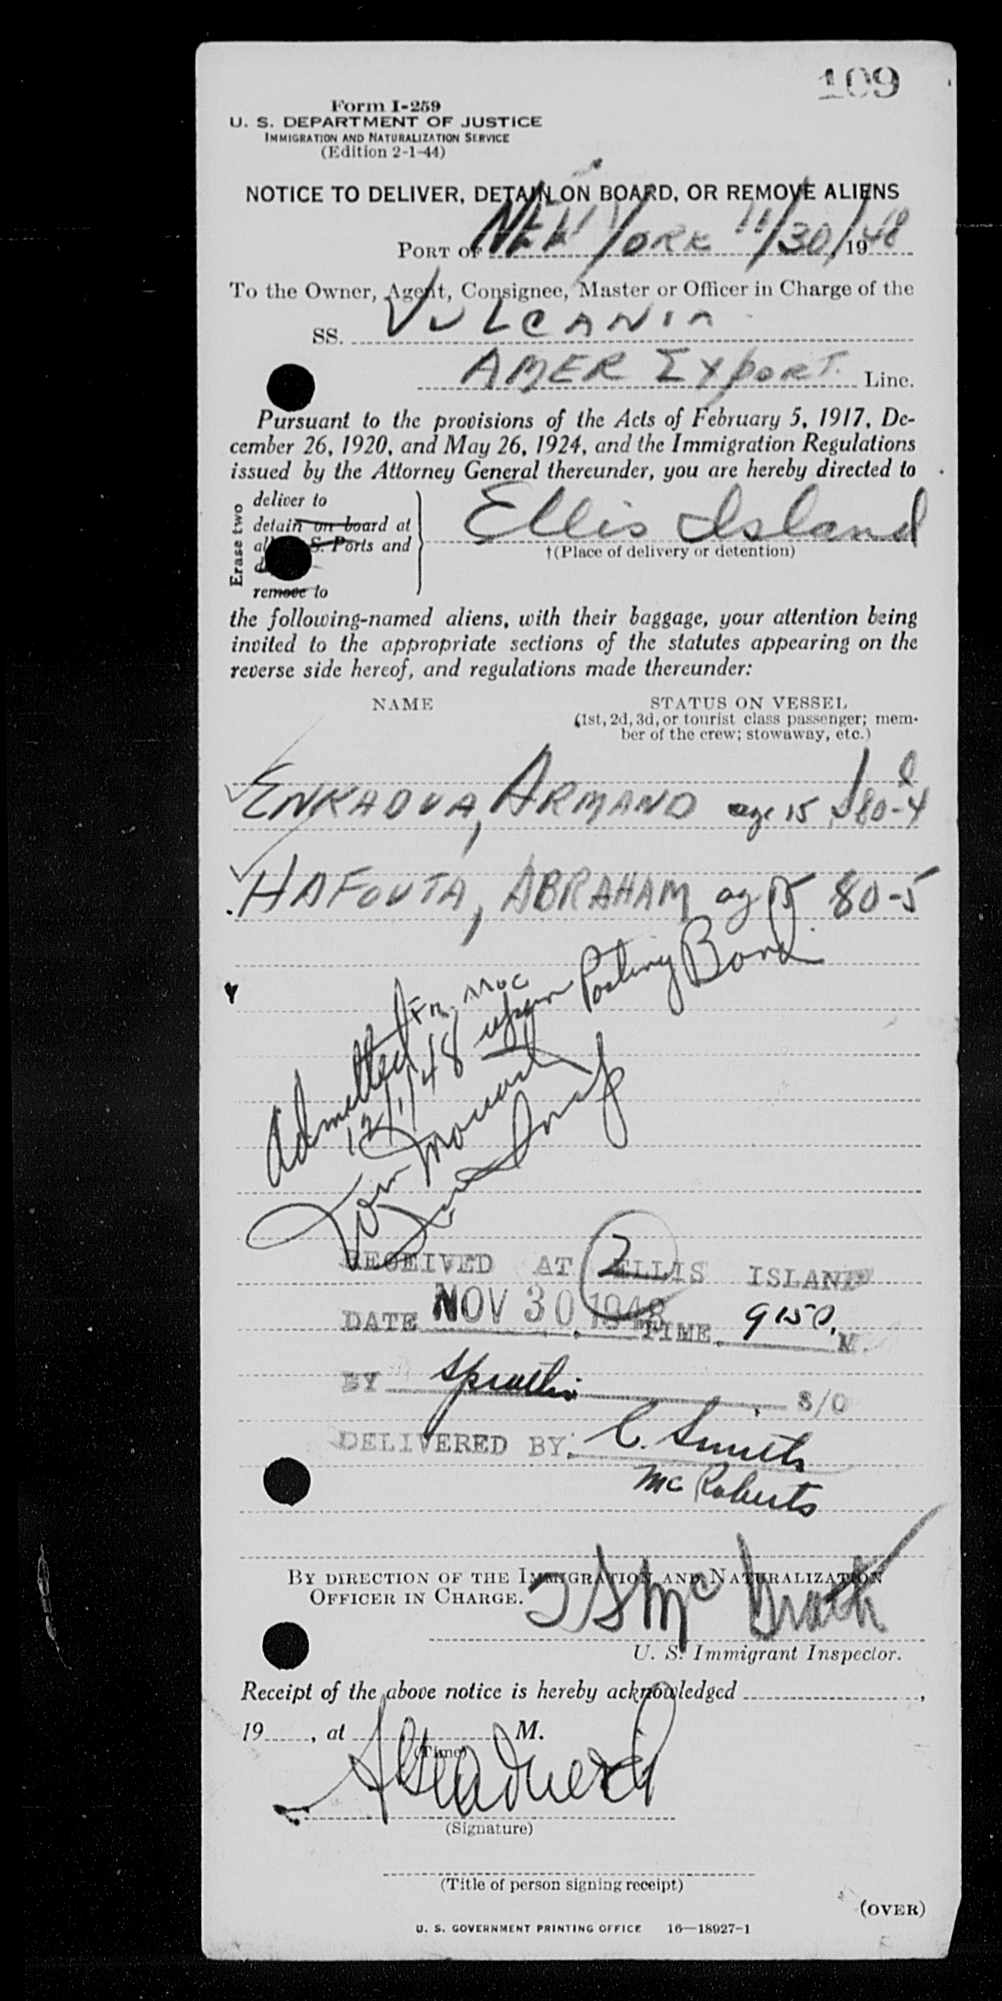 109
Form I-259
U. S. DEPARTMENT OF JUSTICE
IMMIGRATION AND NATURALIZATION SERVICE
(Edition 2-1-44)
NOTICE TO DELIVER, DETAIN ON BOARD, OR REMOVE ALIENS
PORT OF NEW YORK 11/30/1948
To the Owner, Agent, Consignee, Master or Officer in Charge of the
SS. VULCANIA
AMER EXPORT. Line.
Pursuant to the provisions of the Acts of February 5, 1917, De-
cember 26, 1920, and May 26, 1924, and the Immigration Regulations
issued by the Attorney General thereunder, you are hereby directed to
Erase two
deliver to
detain on board at
S. Ports and
remove to
Ellis Island
†(Place of delivery or detention)
the following-named aliens, with their baggage, your attention being
invited to the appropriate sections of the statutes appearing on the
reverse side hereof, and regulations made thereunder:
NAME
STATUS ON VESSEL
(1st, 2d, 3d, or tourist class passenger; mem-
ber of the crew; stowaway, etc.)
ENKAOUA, ARMAND age 15 80-4
HAFOUTA, ABRAHAM ag 15 80-5
Admitted
12/1/48 upon Posting Bond
RECEIVED AT ELLIS ISLAND
2
DATE NOV 30 1948 TIME 915 P. M.
BY S/O
DELIVERED BY: C. Smith
McRoberts
BY DIRECTION OF THE IMMIGRATION AND NATURALIZATION
OFFICER IN CHARGE.
U. S. Immigrant Inspector.
Receipt of the above notice is hereby acknowledged ,
19 , at M.
(Time)
(Signature)
(Title of person signing receipt)
(OVER)
U. S. GOVERNMENT PRINTING OFFICE 16—18927-1